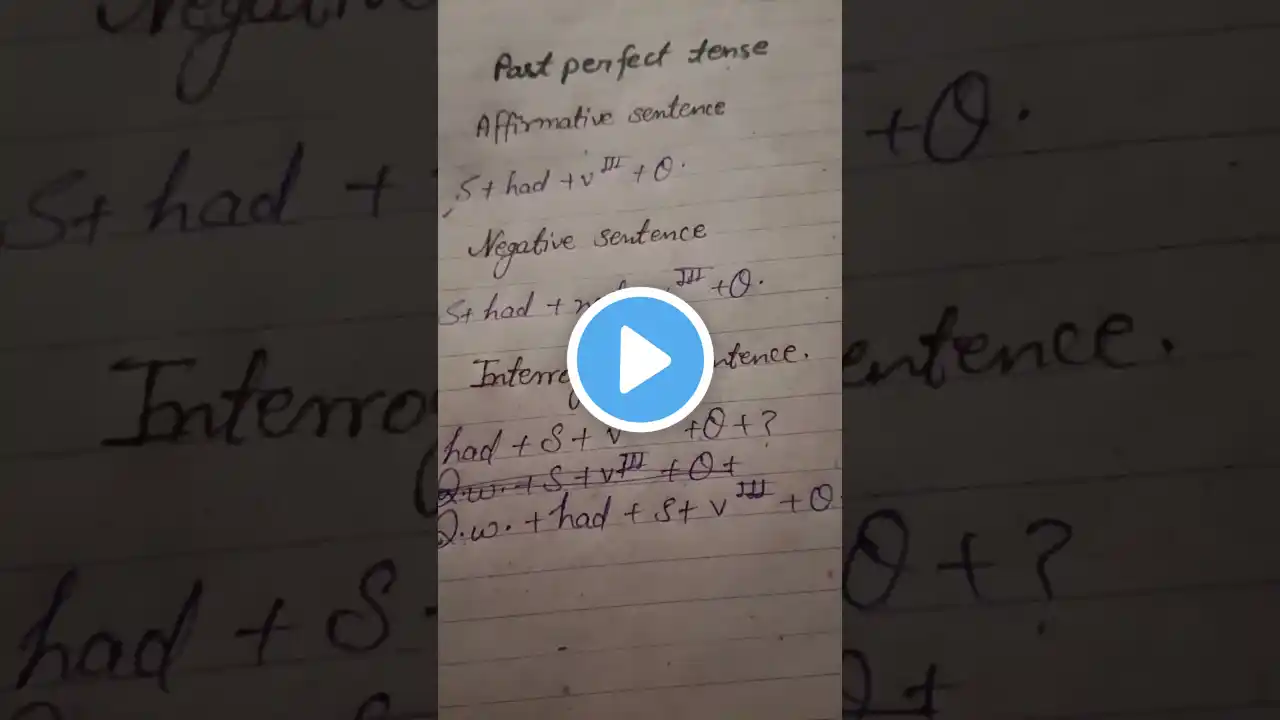 Past perfect tense
Affirmative sentence
S + had + v III + O.
Negative sentence
S + had + III + O.
sentence.
had + S + v + O + ?
Q.w. + S + v III + O +
Q.w. + had + S + v III + O